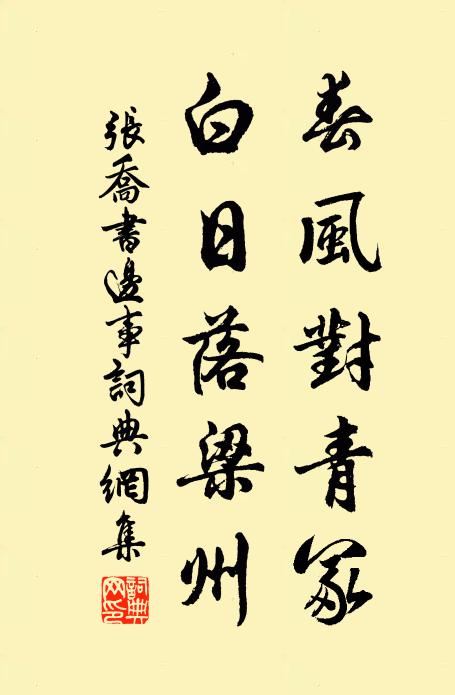 春風對青冢
白日落梁州
張喬書邊事詞典網集
詞典網印